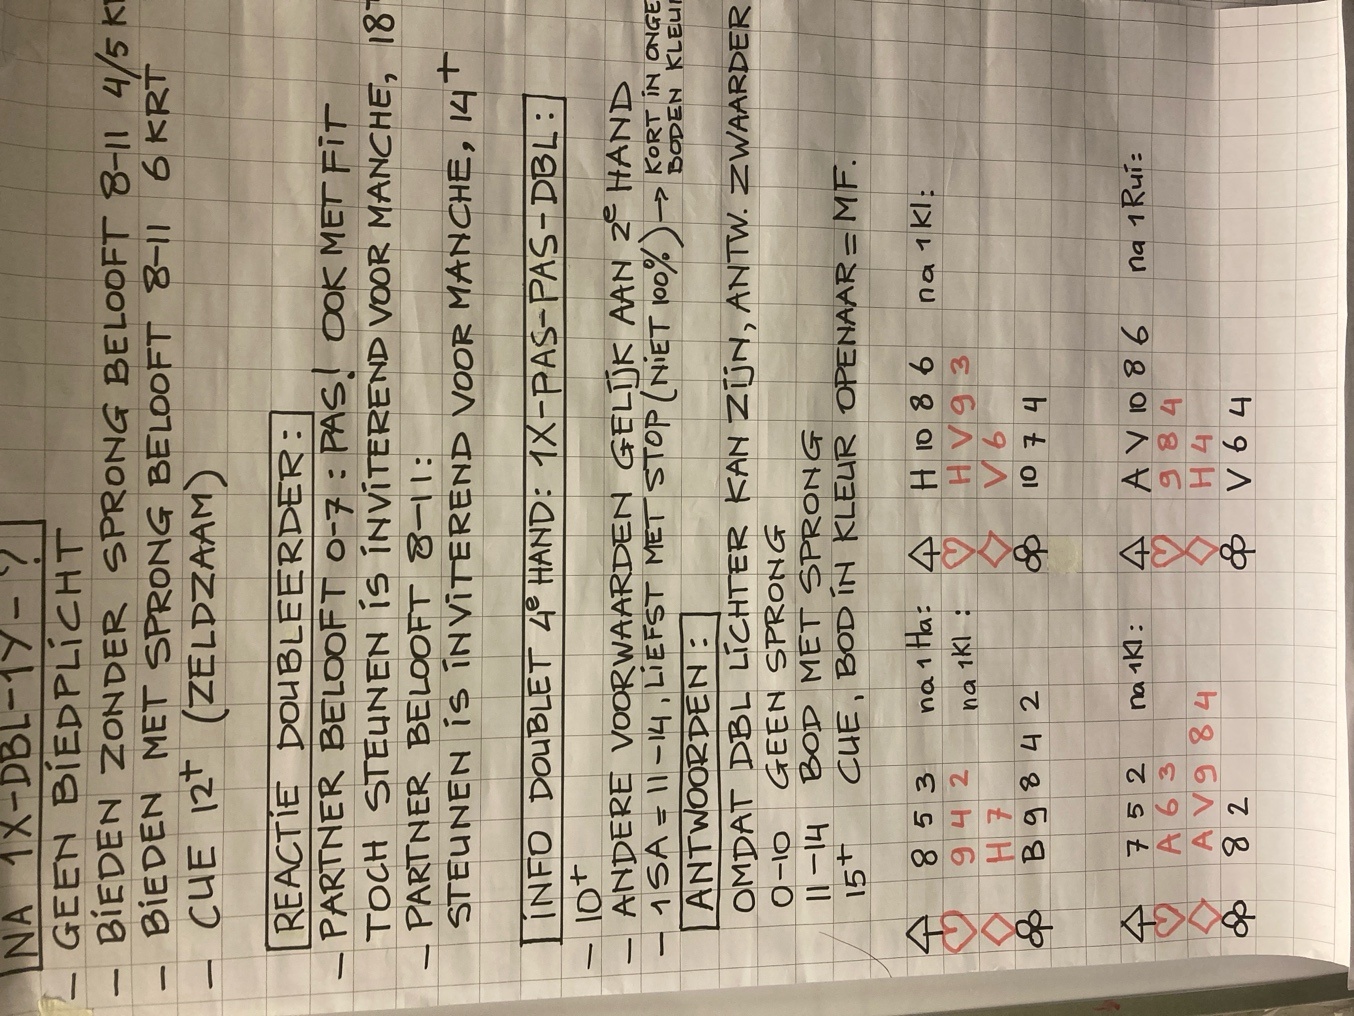 NA 1X-DBL-1Y-?
- GEEN BIEDPLICHT
- BIEDEN ZONDER SPRONG BELOOFT 8-11 4/5
- BIEDEN MET SPRONG BELOOFT 8-11 6 KRT
- CUE 12+ (ZELDZAAM)
REACTIE DOUBLEERDER:
- PARTNER BELOOFT 0-7: PAS! OOK MET FIT
TOCH STEUNEN IS INVITEREND VOOR MANCHE, 18+
- PARTNER BELOOFT 8-11:
STEUNEN IS INVITEREND VOOR MANCHE, 14+
INFO DOUBLET 4e HAND: 1X-PAS-PAS-DBL:
- 10+
- ANDERE VOORWAARDEN GELIJK AAN 2e HAND
- 1SA = 11-14, LIEFST MET STOP (NIET 100%) → KORT IN
BODEN
ANTWOORDEN:
OMDAT DBL LICHTER KAN ZIJN, ANTW. ZWAARDER
0-10 GEEN SPRONG
11-14 BOD MET SPRONG
15+ CUE, BOD IN KLEUR OPENAAR = MF.
♤ 8 5 3 na 1Ha:
♡ 9 4 2 na 1Kl:
♢ H 7
♧ B 9 8 4 2
♤ H 10 8 6 na 1Kl:
♡ H V 9 3
♢ V 6
♧ 10 7 4
♤ 7 5 2 na 1Kl:
♡ A 6 3
♢ A V 9 8 4
♧ 8 2
♤ A V 10 8 6 na 1Rui:
♡ 9 8 4
♢ H 4
♧ V 6 4